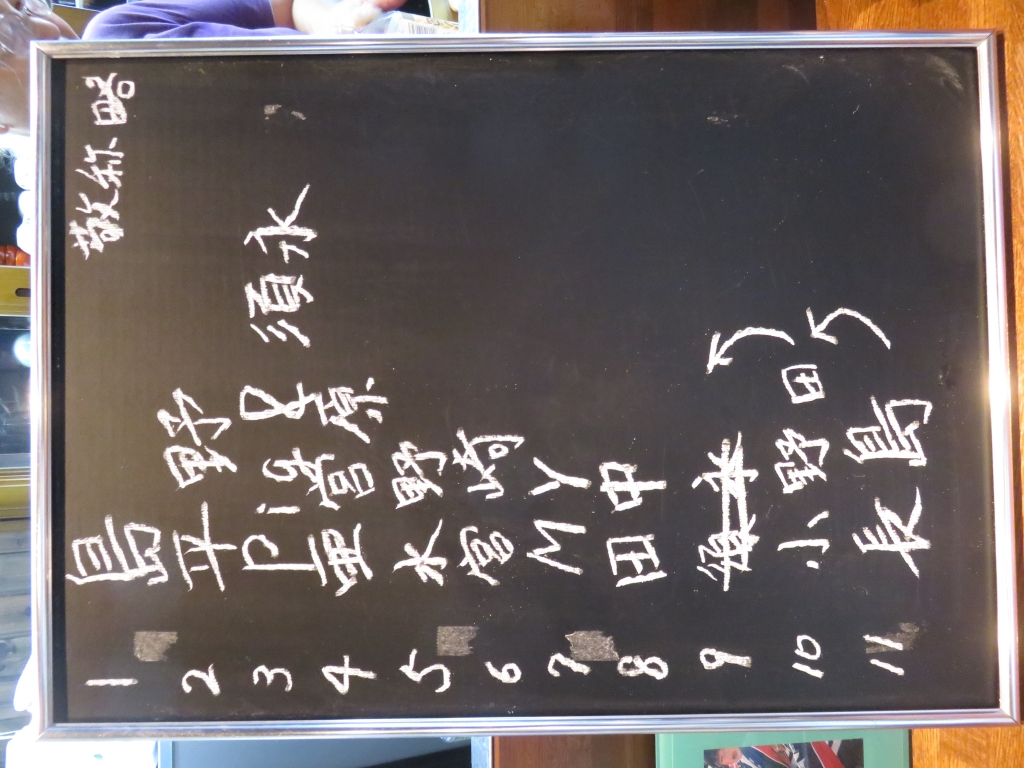 敬称略
1 島
2 平野
3 Pig & 須永
4 原
5 水野
6 宮崎
7 MY
8 田中
9
10 小野田
11 長島